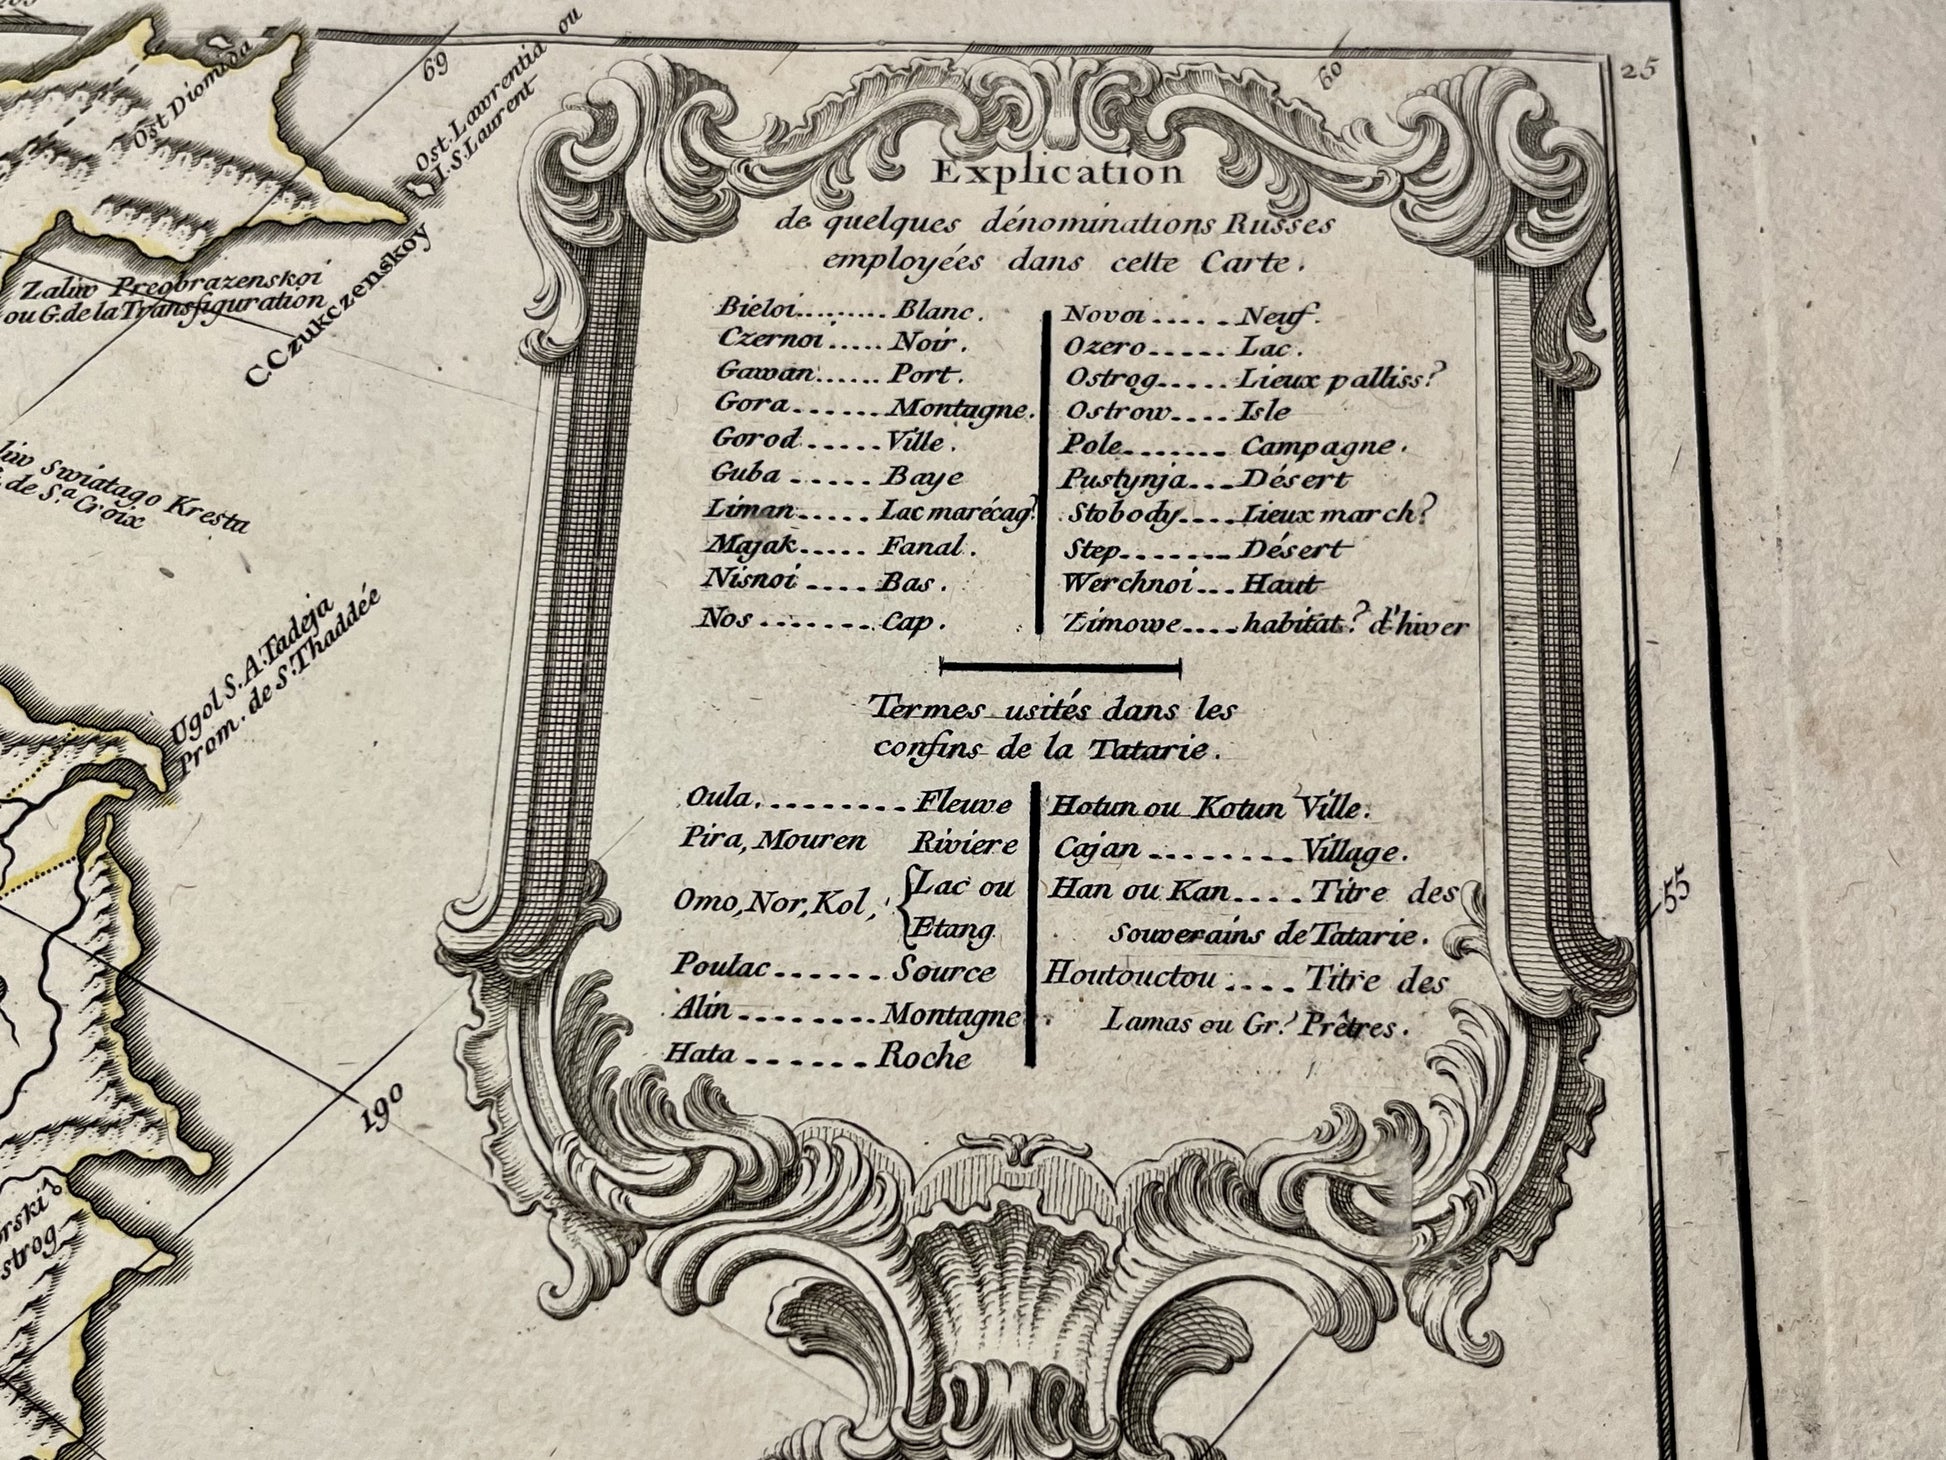 Explication
de quelques dénominations Russes
employées dans cette Carte.
Bieloi......... Blanc.
Czernoi..... Noir.
Gawan...... Port.
Gora....... Montagne.
Gorod ..... Ville.
Guba ...... Baye
Liman..... Lac marécag?
Majak..... Fanal.
Nisnoi .... Bas.
Nos ....... Cap.
Novoi ..... Neuf.
Ozero..... Lac.
Ostrog..... Lieux palliss?
Ostrow.... Isle
Pole....... Campagne.
Pustynja... Désert
Slobody.... Lieux march?
Step....... Désert
Werchnoi... Haut
Zimowe.... habitat? d'hiver
Termes usités dans les
confins de la Tatarie.
Oula.......... Fleuve
Pira, Mouren Riviere
Omo, Nor, Kol, { Lac ou
Etang
Poulac ...... Source
Alin ........ Montagne
Hata ....... Roche
Hotun ou Kotun Ville.
Cajan ........ Village.
Han ou Kan.... Titre des
Souverains de Tatarie.
Houtouctou .... Titre des
Lamas ou Gr.? Prêtres.
69
60
25
55
190
Ost Diomida
Ost. Lawrentia ou
I. S. Laurent
C. Czukczenskoy
Zaliw Preobrazenskoi
ou G. de la Transfiguration
liw Swiatago Kresta
de S.a Croix
Ugol S. A. Tadeja
Prom. de S. Thaddée
rski
strog